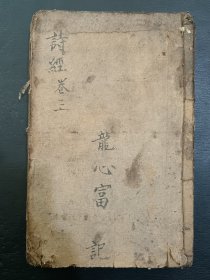 詩經卷三
龍心富記